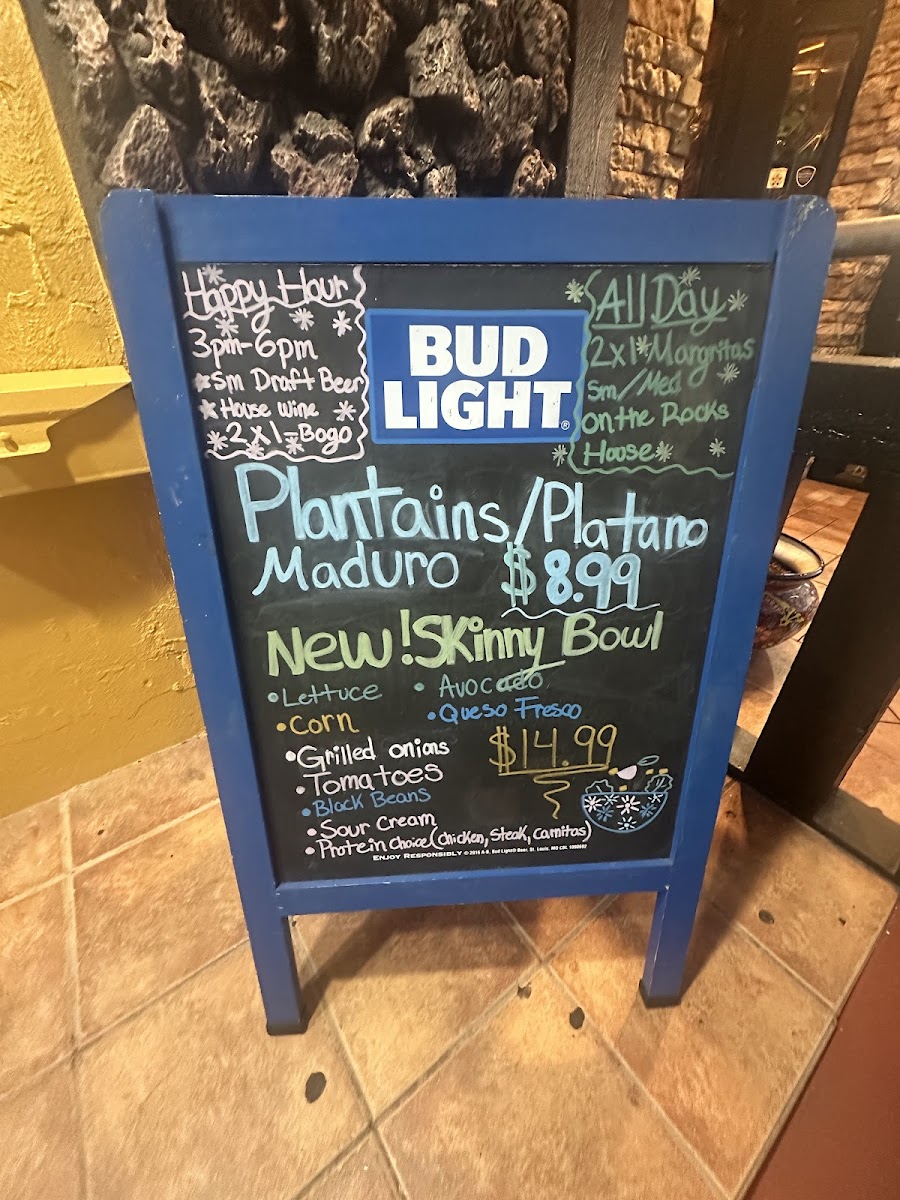 Happy Hour
3pm-6pm
*Sm Draft Beer
*House wine
*2x1-Bogo
BUD
LIGHT®
All Day
2x1*Margritas
Sm/Med
on the Rocks
House*
Plantains/Platano
Maduro $8.99
New! Skinny Bowl
•Lettuce
•Corn
•Grilled onions
•Tomatoes
•Black Beans
•Sour Cream
•Protein choice (chicken, steak, carnitas)
•Avocado
•Queso Fresco
$14.99
ENJOY RESPONSIBLY © 2016 A-B, Bud Light® Beer, St. Louis, MO